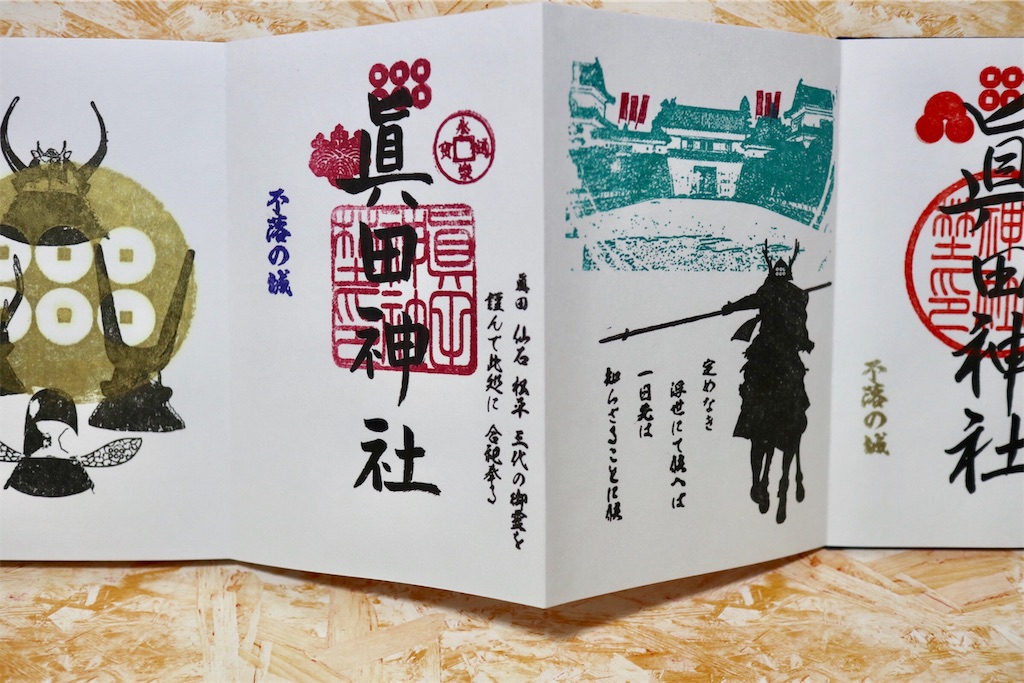 眞田 仙石 松平 三代の御霊を
謹んで此処に 合祀奉る
永樂通寳
眞田神社
不落の城
定めなき
浮世にて候へば
一日先は
知らざることに候
眞田神社
不落の城